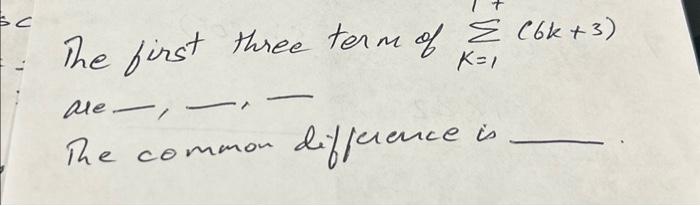 The first three term of Σ (6k+3)
K=1
are —, —, —
The common difference is ——.